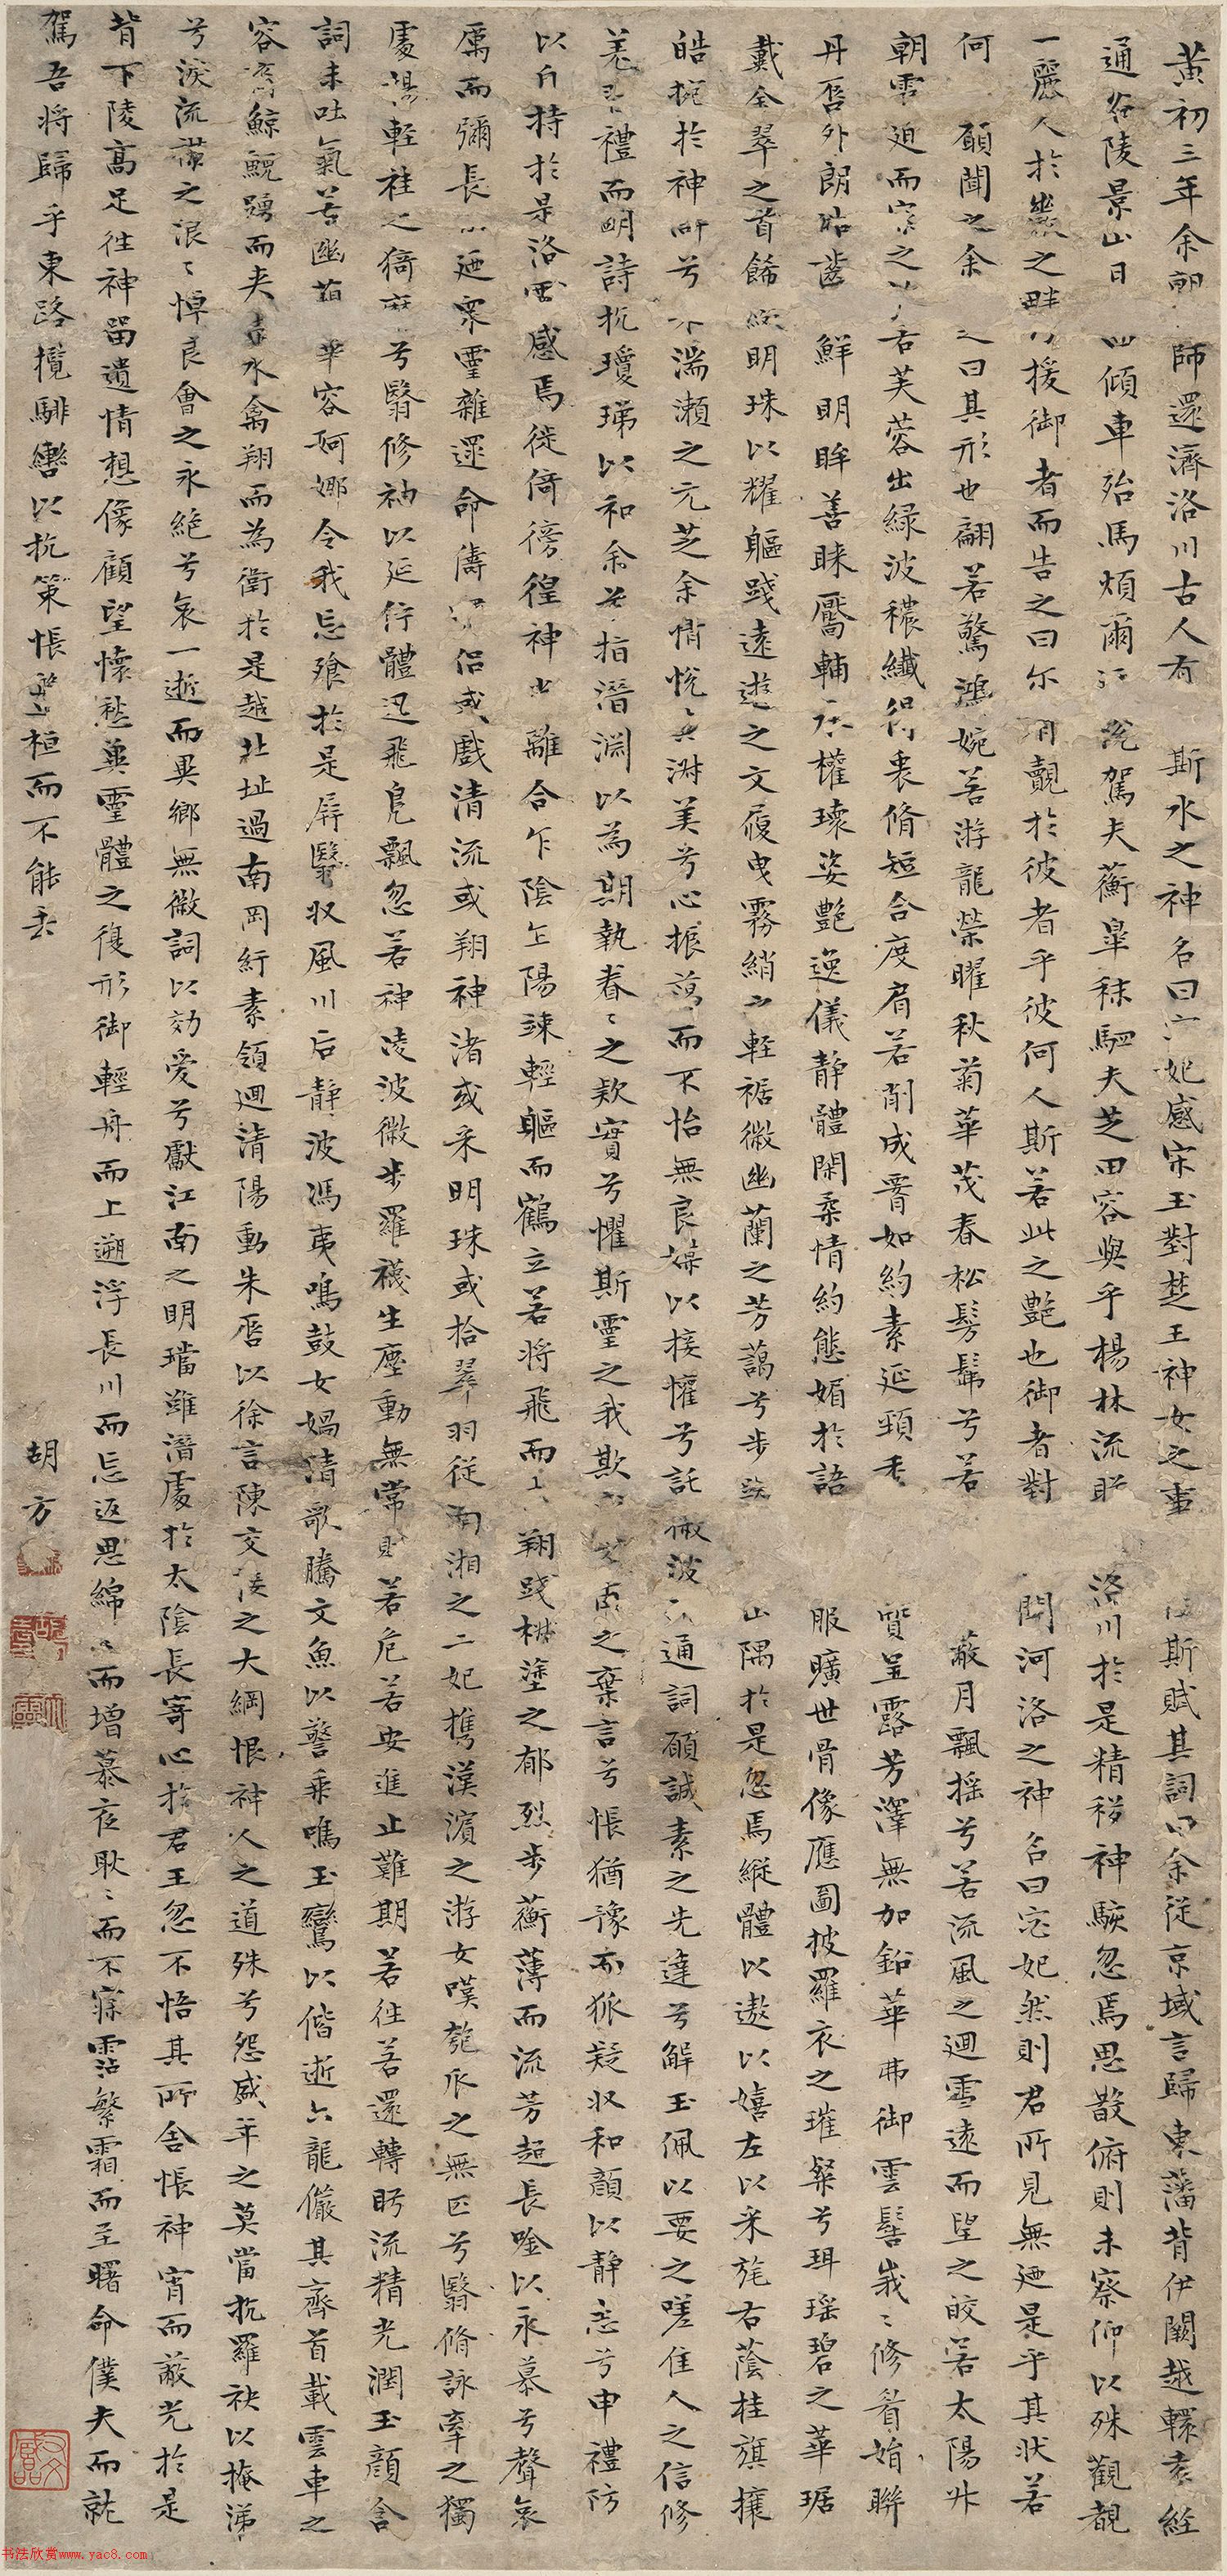 黃初三年余朝師還濟洛川古人有斯水之神名曰宓妃感宋玉對楚王神女之事斯賦其詞曰余從京域言歸東藩背伊闕越轘轅經
通谷陵景山日西傾車殆馬煩爾迺稅駕夫蘅皐秣駟夫芝田容與乎楊林流眄洛川於是精移神駭忽焉思散俯則未察仰以殊觀覩
一麗人於巖之畔乃援御者而告之曰尓有覿於彼者乎彼何人斯若此之艷也御者對聞河洛之神名曰宓妃然則君所見無迺是乎其狀若
何願聞之余之曰其形也翩若驚鴻婉若游龍榮曜秋菊華茂春松髣髴兮若蔽月飄揺兮若流風之迴雪遠而望之皎若太陽升
朝雲迫而察之若芙蓉出緑波穠纖得衷脩短合度肩若削成署如約素延頸秀質呈露芳澤無加鉛華弗御雲髻峩〻修眉娟聯
丹唇外朗皓齒鮮明眸善睞靨輔承權瓌姿艷逸儀静體閑柔情約態媚於語服曠世骨像應圖披羅衣之璀粲兮珥瑶碧之華琚
戴金翠之首餙綴明珠以耀軀踐遠遊之文履曳霧綃之輕裾微幽蘭之芳藹兮步踟山隅於是忽焉縱體以遨以嬉左以采旄右蔭桂旗攘
皓捥於神滸兮采湍瀨之元芝余情悅其淑美兮心振蕩而不怡無良媒以接懽兮託微波以通詞願誠素之先達兮解玉佩以要之嗟佳人之信修
羌習禮而明詩抗瓊珶以和余兮指潛淵以為期執眷〻之欵實兮懼斯靈之我欺交甫之棄言兮悵猶豫而狐疑収和顔以静志兮申禮防
以自持於是洛靈感焉徙倚徬徨神光離合乍陰乍陽竦輕軀而鶴立若將飛而未翔踐椒塗之郁烈步蘅薄而流芳超長唫以永慕兮聲哀
厲而彌長尒迺眾靈雜遝命儔嘯侣或戲清流或翔神渚或采明珠或拾翠羽従南湘之二妃携漢濱之游女嘆匏瓜之無匹兮翳脩詠牽之獨
處揚輕袿之猗靡兮翳修袖以延佇體迅飛凫飄忽若神凌波微步羅襪生塵動無常則若危若安進止難期若往若還轉眄流精光潤玉顔含
詞未吐氣若幽蘭華容婀娜令我忘飱於是屏翳収風川后靜波馮夷鳴鼓女媧清歌騰文魚以警乘鳴玉鸞以偕逝六龍儼其齊首載雲車之
容裔鯨鯢踴而夾轂水禽翔而為衛於是越北沚過南岡紆素領迴清陽動朱唇以徐言陳交接之大綱恨神人之道殊兮怨盛年之莫當抗羅袂以掩涕
兮淚流襟之浪〻悼良會之永絕兮哀一逝而異鄉無微詞以効愛兮獻江南之明璫雖潛處於太陰長寄心於君王忽不悟其所舍悵神宵而蔽光於是
背下陵高足往神留遺情想像顧望懷愁冀靈體之復形御輕舟而上遡浮長川而忘返思綿〻而增慕夜耿〻而不寐霑繁霜而至曙命僕夫而就
駕吾将歸乎東路攬騑轡以抗策悵盤桓而不能去
胡方
书法欣赏www.yac8.com